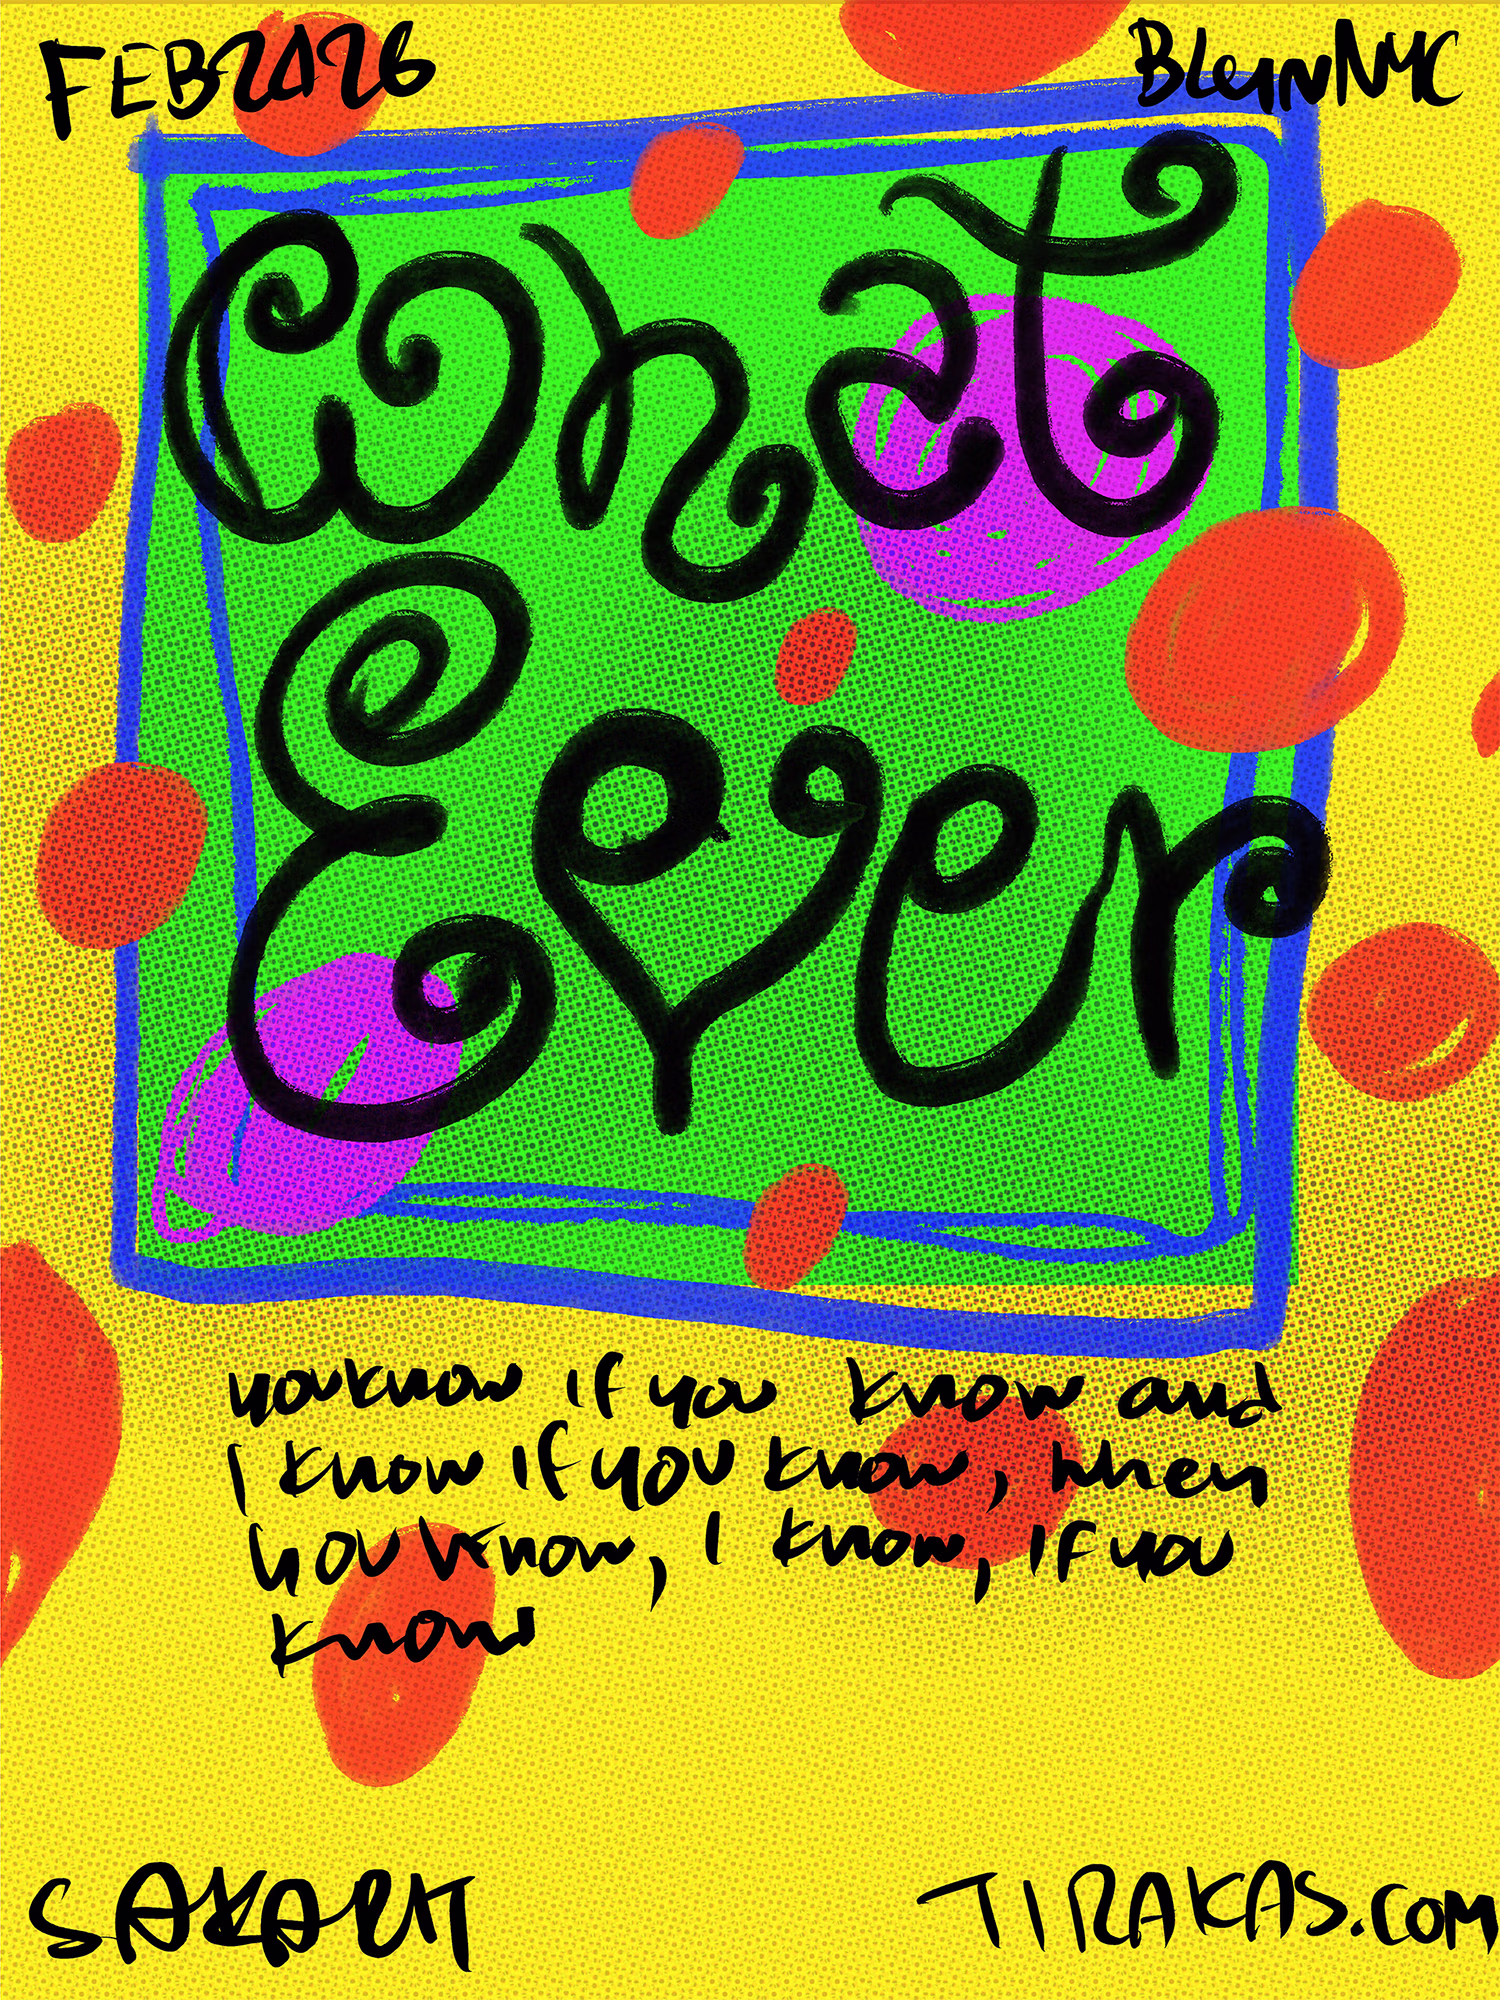 FEB2026
BLeinNYC
What
Ever
youknow if you know and
I know if you know, when
you know, I know, if you
know
SAKART
TIRAKAS.COM